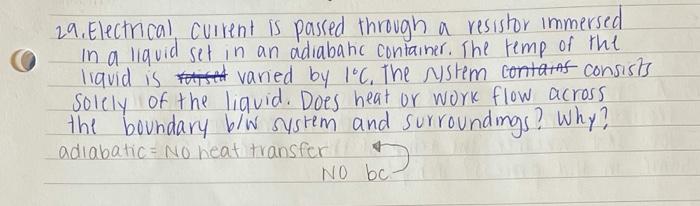 2a. Electrical current is passed through a resistor immersed
in a liquid set in an adiabatic container. The temp of the
liquid is varied by 1°C. The system contains consists
solely of the liquid. Does heat or work flow across
the boundary b/w system and surroundings? Why?
adiabatic = NO heat transfer
NO bc